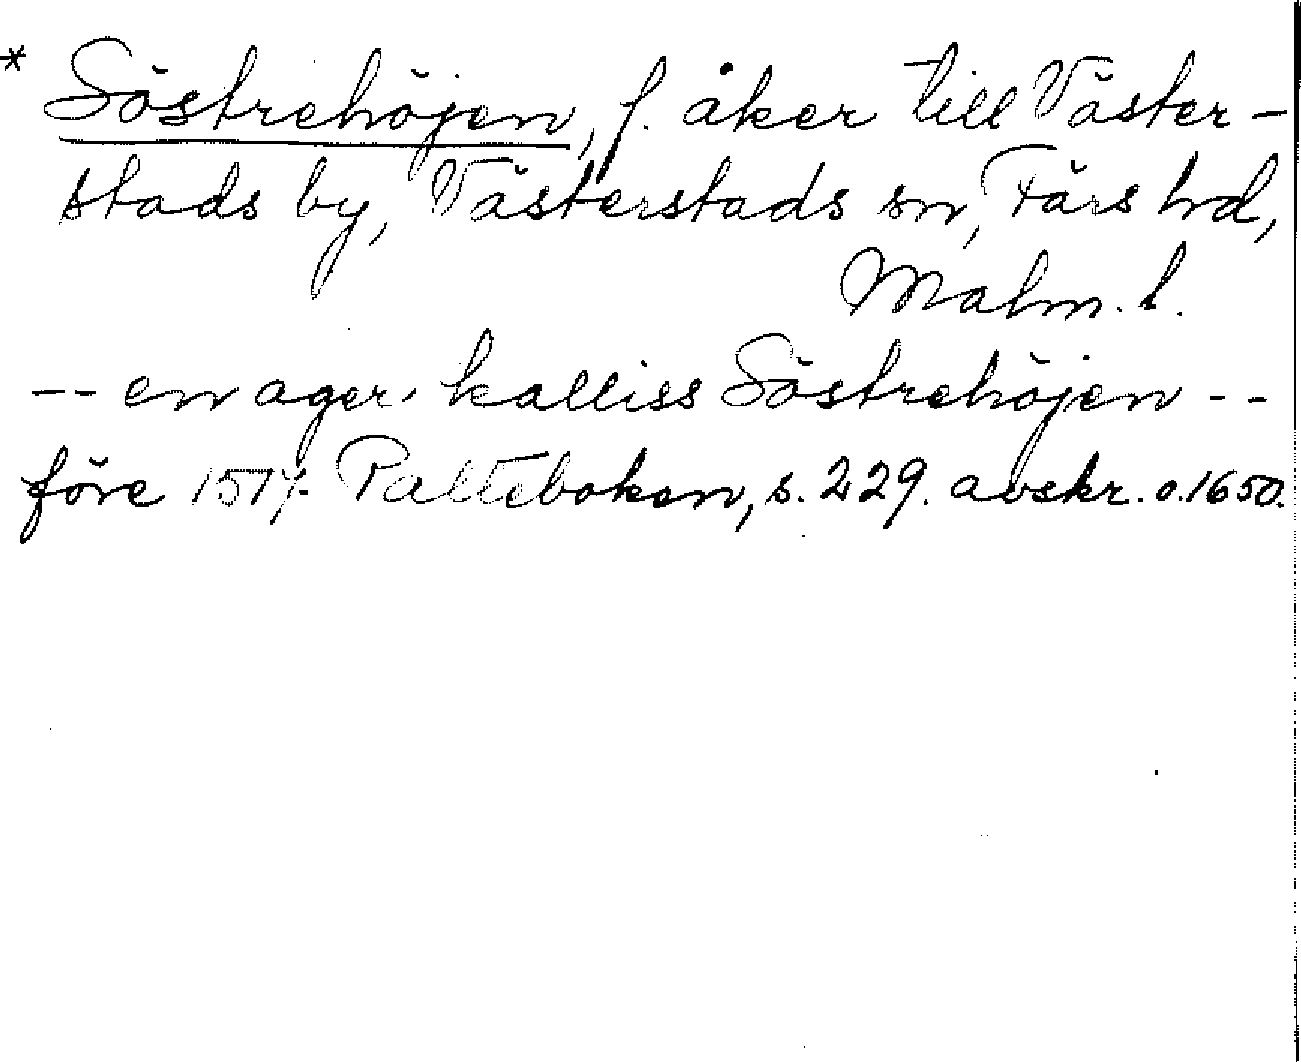 * Söstrehöjen, f. åker till Väster-
stads by, Västerstads sn, Färs hd,
Malm. l.
-- en ager kalliss Söstrehöjen --
före 1517. Palteboken, s. 229. avskr. o. 1650.